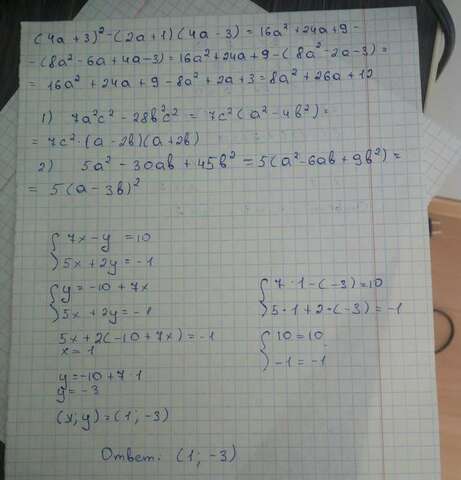 (4a + 3)² - (2a + 1)(4a - 3) = 16a² + 24a + 9 -
- (8a² - 6a + 4a - 3) = 16a² + 24a + 9 - (8a² - 2a - 3) =
= 16a² + 24a + 9 - 8a² + 2a + 3 = 8a² + 26a + 12
1) 7a²c² - 28b²c² = 7c²(a² - 4b²) =
= 7c² · (a - 2b)(a + 2b)
2) 5a² - 30ab + 45b² = 5(a² - 6ab + 9b²) =
= 5(a - 3b)²
7x - y = 10
5x + 2y = -1
y = -10 + 7x
5x + 2y = -1
5x + 2(-10 + 7x) = -1
x = 1
y = -10 + 7 · 1
y = -3
(x; y) = (1; -3)
7 · 1 - (-3) = 10
5 · 1 + 2 · (-3) = -1
10 = 10
-1 = -1
Ответ: (1; -3)